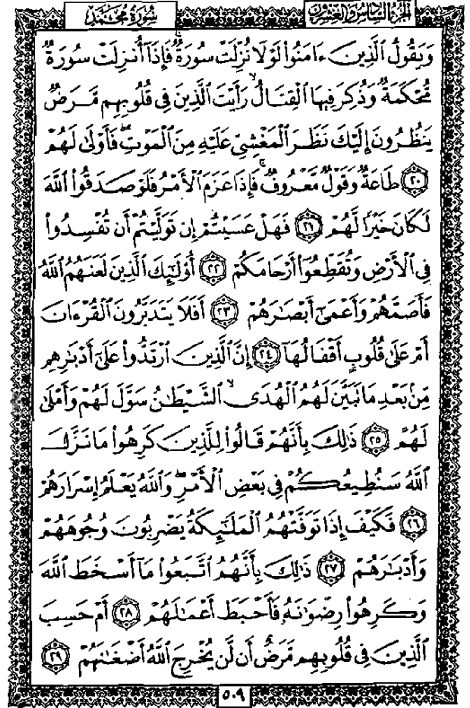 الجزء السادس والعشرون
سورة محمد
وَيَقُولُ ٱلَّذِينَ ءَامَنُوا۟ لَوْلَا نُزِّلَتْ سُورَةٌۖ فَإِذَآ أُنزِلَتْ سُورَةٌ
مُّحْكَمَةٌ وَذُكِرَ فِيهَا ٱلْقِتَالُۙ رَأَيْتَ ٱلَّذِينَ فِى قُلُوبِهِم مَّرَضٌ
يَنظُرُونَ إِلَيْكَ نَظَرَ ٱلْمَغْشِىِّ عَلَيْهِ مِنَ ٱلْمَوْتِۖ فَأَوْلَىٰ لَهُمْ
٢٠ طَاعَةٌ وَقَوْلٌ مَّعْرُوفٌۚ فَإِذَا عَزَمَ ٱلْأَمْرُ فَلَوْ صَدَقُوا۟ ٱللَّهَ
لَكَانَ خَيْرًا لَّهُمْ ٢١ فَهَلْ عَسَيْتُمْ إِن تَوَلَّيْتُمْ أَن تُفْسِدُوا۟
فِى ٱلْأَرْضِ وَتُقَطِّعُوٓا۟ أَرْحَامَكُمْ ٢٢ أُو۟لَٰٓئِكَ ٱلَّذِينَ لَعَنَهُمُ ٱللَّهُ
فَأَصَمَّهُمْ وَأَعْمَىٰٓ أَبْصَٰرَهُمْ ٢٣ أَفَلَا يَتَدَبَّرُونَ ٱلْقُرْءَانَ
أَمْ عَلَىٰ قُلُوبٍ أَقْفَالُهَآ ٢٤ إِنَّ ٱلَّذِينَ ٱرْتَدُّوا۟ عَلَىٰٓ أَدْبَٰرِهِم
مِّنۢ بَعْدِ مَا تَبَيَّنَ لَهُمُ ٱلْهُدَىۙ ٱلشَّيْطَٰنُ سَوَّلَ لَهُمْ وَأَمْلَىٰ
لَهُمْ ٢٥ ذَٰلِكَ بِأَنَّهُمْ قَالُوا۟ لِلَّذِينَ كَرِهُوا۟ مَا نَزَّلَ
ٱللَّهُ سَنُطِيعُكُمْ فِى بَعْضِ ٱلْأَمْرِۖ وَٱللَّهُ يَعْلَمُ إِسْرَارَهُمْ
٢٦ فَكَيْفَ إِذَا تَوَفَّتْهُمُ ٱلْمَلَٰٓئِكَةُ يَضْرِبُونَ وُجُوهَهُمْ
وَأَدْبَٰرَهُمْ ٢٧ ذَٰلِكَ بِأَنَّهُمُ ٱتَّبَعُوا۟ مَآ أَسْخَطَ ٱللَّهَ
وَكَرِهُوا۟ رِضْوَٰنَهُۥ فَأَحْبَطَ أَعْمَٰلَهُمْ ٢٨ أَمْ حَسِبَ
ٱلَّذِينَ فِى قُلُوبِهِم مَّرَضٌ أَن لَّن يُخْرِجَ ٱللَّهُ أَضْغَٰنَهُمْ ٢٩
٥٠٩